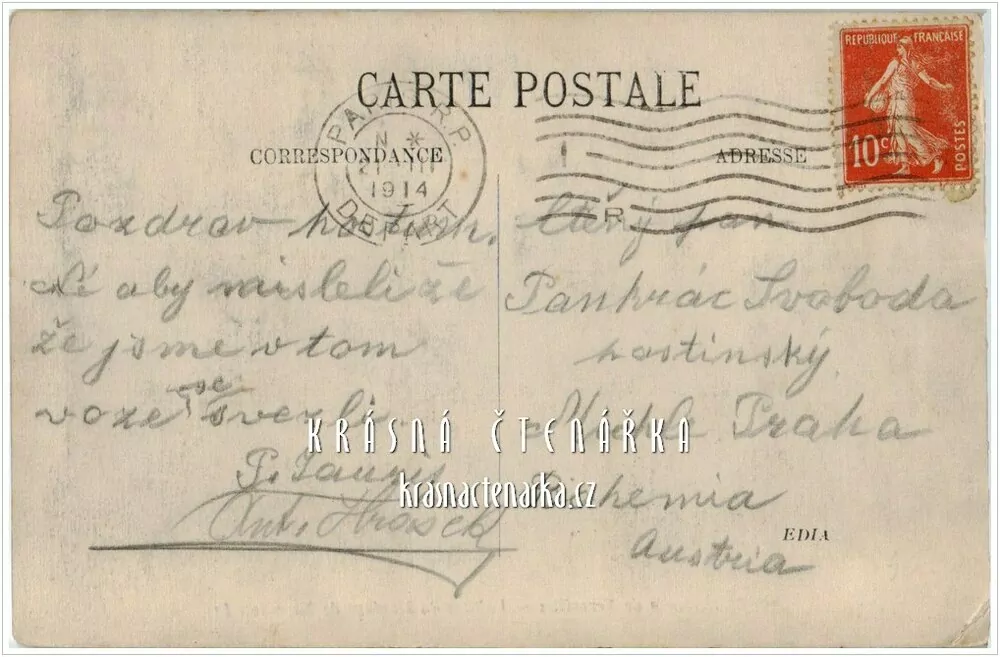 CARTE POSTALE
RÉPUBLIQUE FRANÇAISE
10c
POSTES
PARIS R.P.
N *
21 III
1914
DEPART
CORRESPONDANCE
ADRESSE
R
Pozdrav
Né aby misleli že
že jsme v tom
voze se svezli
Ant. Hrášek
Ctěný pan
Pankrác Svoboda
hostinský
Michle Praha
Bohemia
Austria
EDIA
KRÁSNÁ ČTENÁŘKA
krasnactenarka.cz